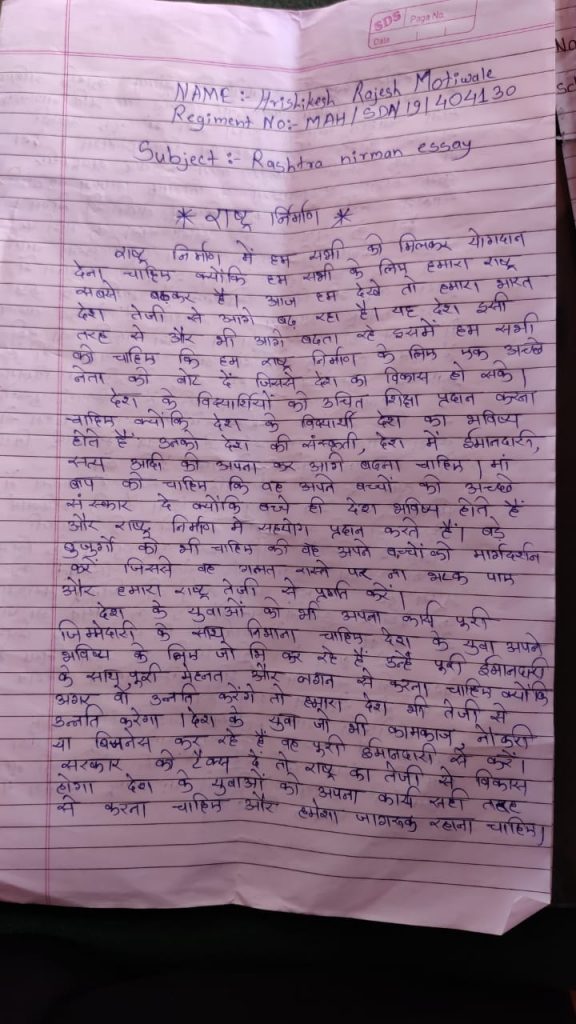 SDS
Page No.
Date
NAME :- Hrishikesh Rajesh Motiwale
Regiment No:- MAH/SDN/19/404130
Subject :- Rashtra nirman essay
* राष्ट्र निर्माण *
राष्ट्र निर्माण में हम सभी को मिलकर योगदान
देना चाहिए क्योंकि हम सभी के लिए हमारा राष्ट्र
सबसे बढकर है। आज हम देखे तो हमारा भारत
देश तेजी से आगे बढ़ रहा है। यह देश इसी
तरह से और भी आगे बढता रहे इसमें हम सभी
को चाहिए कि हम राष्ट्र निर्माण के लिए एक अच्छे
नेता को वोट दें जिससे देश का विकास हो सके।
देश के विद्यार्थियों को उचित शिक्षा प्रदान करना
चाहिए क्योंकि देश के विद्यार्थी देश का भविष्य
होते हैं उनका देश की संस्कृती, देश में ईमानदारी,
सत्य आदी को अपना कर आगे बढना चाहिए। मां
बाप को चाहिए कि वह अपने बच्चों को अच्छे
संस्कार दे क्योंकि बच्चे ही देश भविष्य होते हैं
और राष्ट्र निर्माण में सहयोग प्रदान करते हैं। बड़े
बुजुर्गो को भी चाहिए की वह अपने बच्चों को मार्गदर्शन
करें जिससे वह गलत रास्ते पर ना भटक पाए
और हमारा राष्ट्र तेजी से प्रगति करें।
देश के युवाओं को भी अपना कार्य पूरी
जिम्मेदारी के साथ निभाना चाहिए देश के युवा अपने
भविष्य के लिए जो भि कर रहे हैं उन्हें पूरी ईमानदारी
के साथ, पूरी मेहनत और लगन से करना चाहिए क्योंकि
अगर वो उन्नति करेंगे तो हमारा देश भी तेजी से
उन्नति करेगा। देश के युवा जो भी कामकाज, नोकरी
या बिजनेस कर रहे हैं वह पूरी ईमानदारी से करें।
सरकार को टैक्स दें तो राष्ट्र का तेजी से विकास
होगा देश के युवाओं को अपना कार्य सही तरह
से करना चाहिए और हमेशा जागरूक रहाना चाहिए।
No
Sc